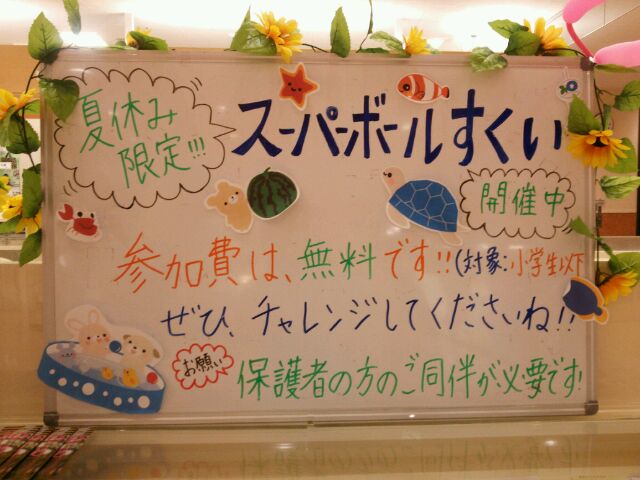 夏休み
限定!!!
スーパーボールすくい
開催中
参加費は、無料です!!(対象:小学生以下
ぜひ、チャレンジしてくださいね!!
お願い
保護者の方のご同伴が必要です!